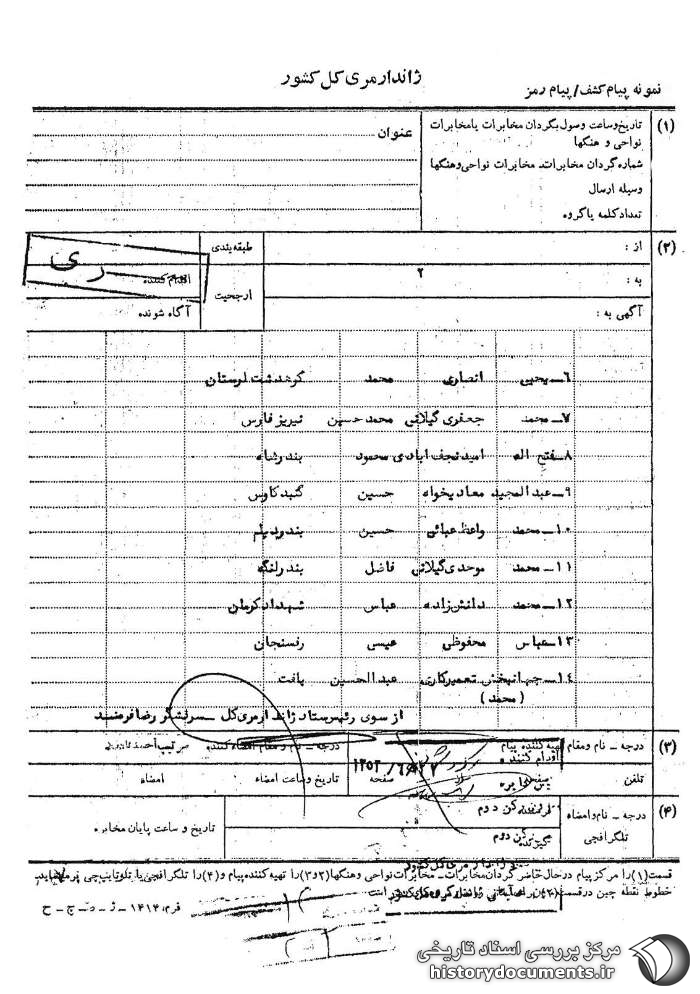 ژاندارمری کل کشور
نمونه پیام کشف / پیام رمز
(۱) تاریخ وساعت وصول بگردان مخابرات یا مخابرات نواحی و هنگها
عنوان
شماره گردان مخابرات ـ مخابرات نواحی وهنگها
وسیله ارسال
تعداد کلمه یا گروه
(۲) از :
طبقه بندی
به :
۲
ارجحیت
اقدام کننده
ری
آگهی به :
آگاه شونده
۶ـ یحیی انصاری محمد کوهدشت لرستان
۷ـ محمد جعفری گیلانی محمد حسین نیریز فارس
۸ـ فتح اله امید نجف ابادی محمود بندرشاه
۹ـ عبدالمجید معادیخواه حسین گنبد کاوس
۱۰ـ محمد واعظ عبائی حسین بندر دیلم
۱۱ـ محمد موحدی گیلانی فاضل بندر لنگه
۱۲ـ محمد دانش زاده عباس شهداد کرمان
۱۳ـ عباس محفوظی عیسی رفسنجان
۱۴ـ جهانبخش تعمیرکاری عبدالحسین بافت
( محمد )
از سوی رئیس ستاد ژاندارمری کل ـ سرلشگر رضا فرمنسد
(۳) درجه ـ نام ومقام تهیه کننده پیام
اقدام کننده
درجه ـ نام و مقام امضاء کننده سرتیپ احمد
تلفن
صفحه
تاریخ وساعت امضاء
امضاء
(۴) درجه ـ نام وامضاء تلگرافچی
تاریخ و ساعت پایان مخابره
قسمت (۱) را مرکز پیام در حال حاضر گردان مخابرات ـ مخابرات نواحی وهنگها (۲و۳) را تهیه کننده پیام و (۴) را تلگرافچی یا تلوتایپ چی پر مینماید
خطوط نقطه چین در قسمت (۲) برای
فرم ۱۴۱۴ ـ ژ ـ ج ـ ح
مرکز بررسی اسناد تاریخی
historydocuments.ir